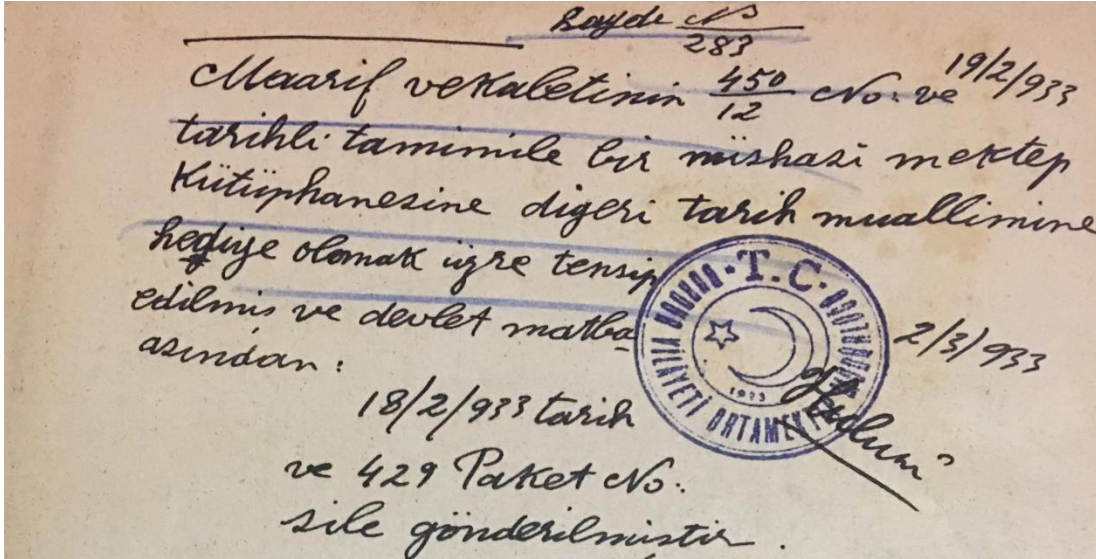 Kayde No
283
Maarif vekaletinin 450/12 No. ve 19/2/933
tarihli tamimile bir nüshası mektep
Kütüphanesine digeri tarih muallimine
hediye olmak üzre tensip
edilmiş ve devlet matba
asından:
18/2/933 tarih
ve 429 Paket No.
sile gönderilmiştir.
2/3/933
T.C.
VİLAYETİ ORTAMEKTE
1933